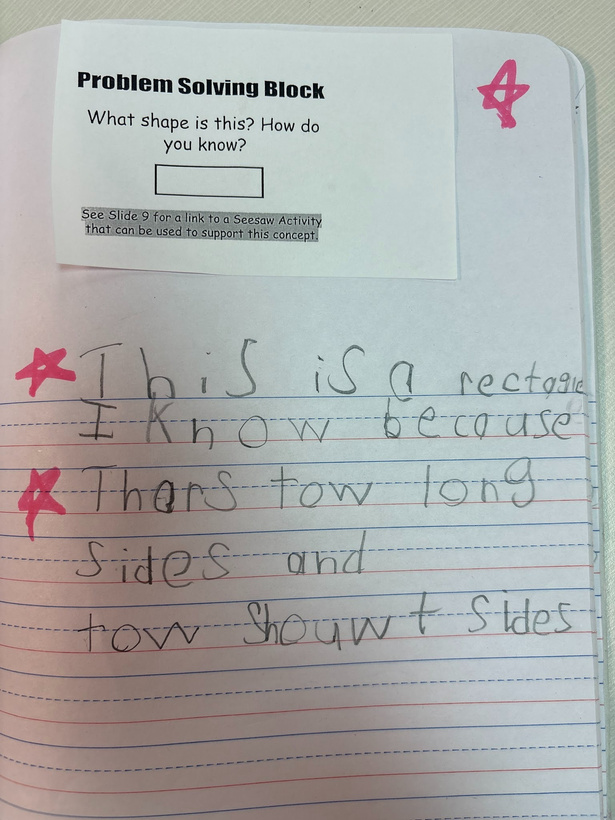 Problem Solving Block
What shape is this? How do
you know?
See Slide 9 for a link to a Seesaw Activity
that can be used to support this concept.
This is a rectagle
I Know because
Thars tow long
Sides and
tow Shouwt Sides